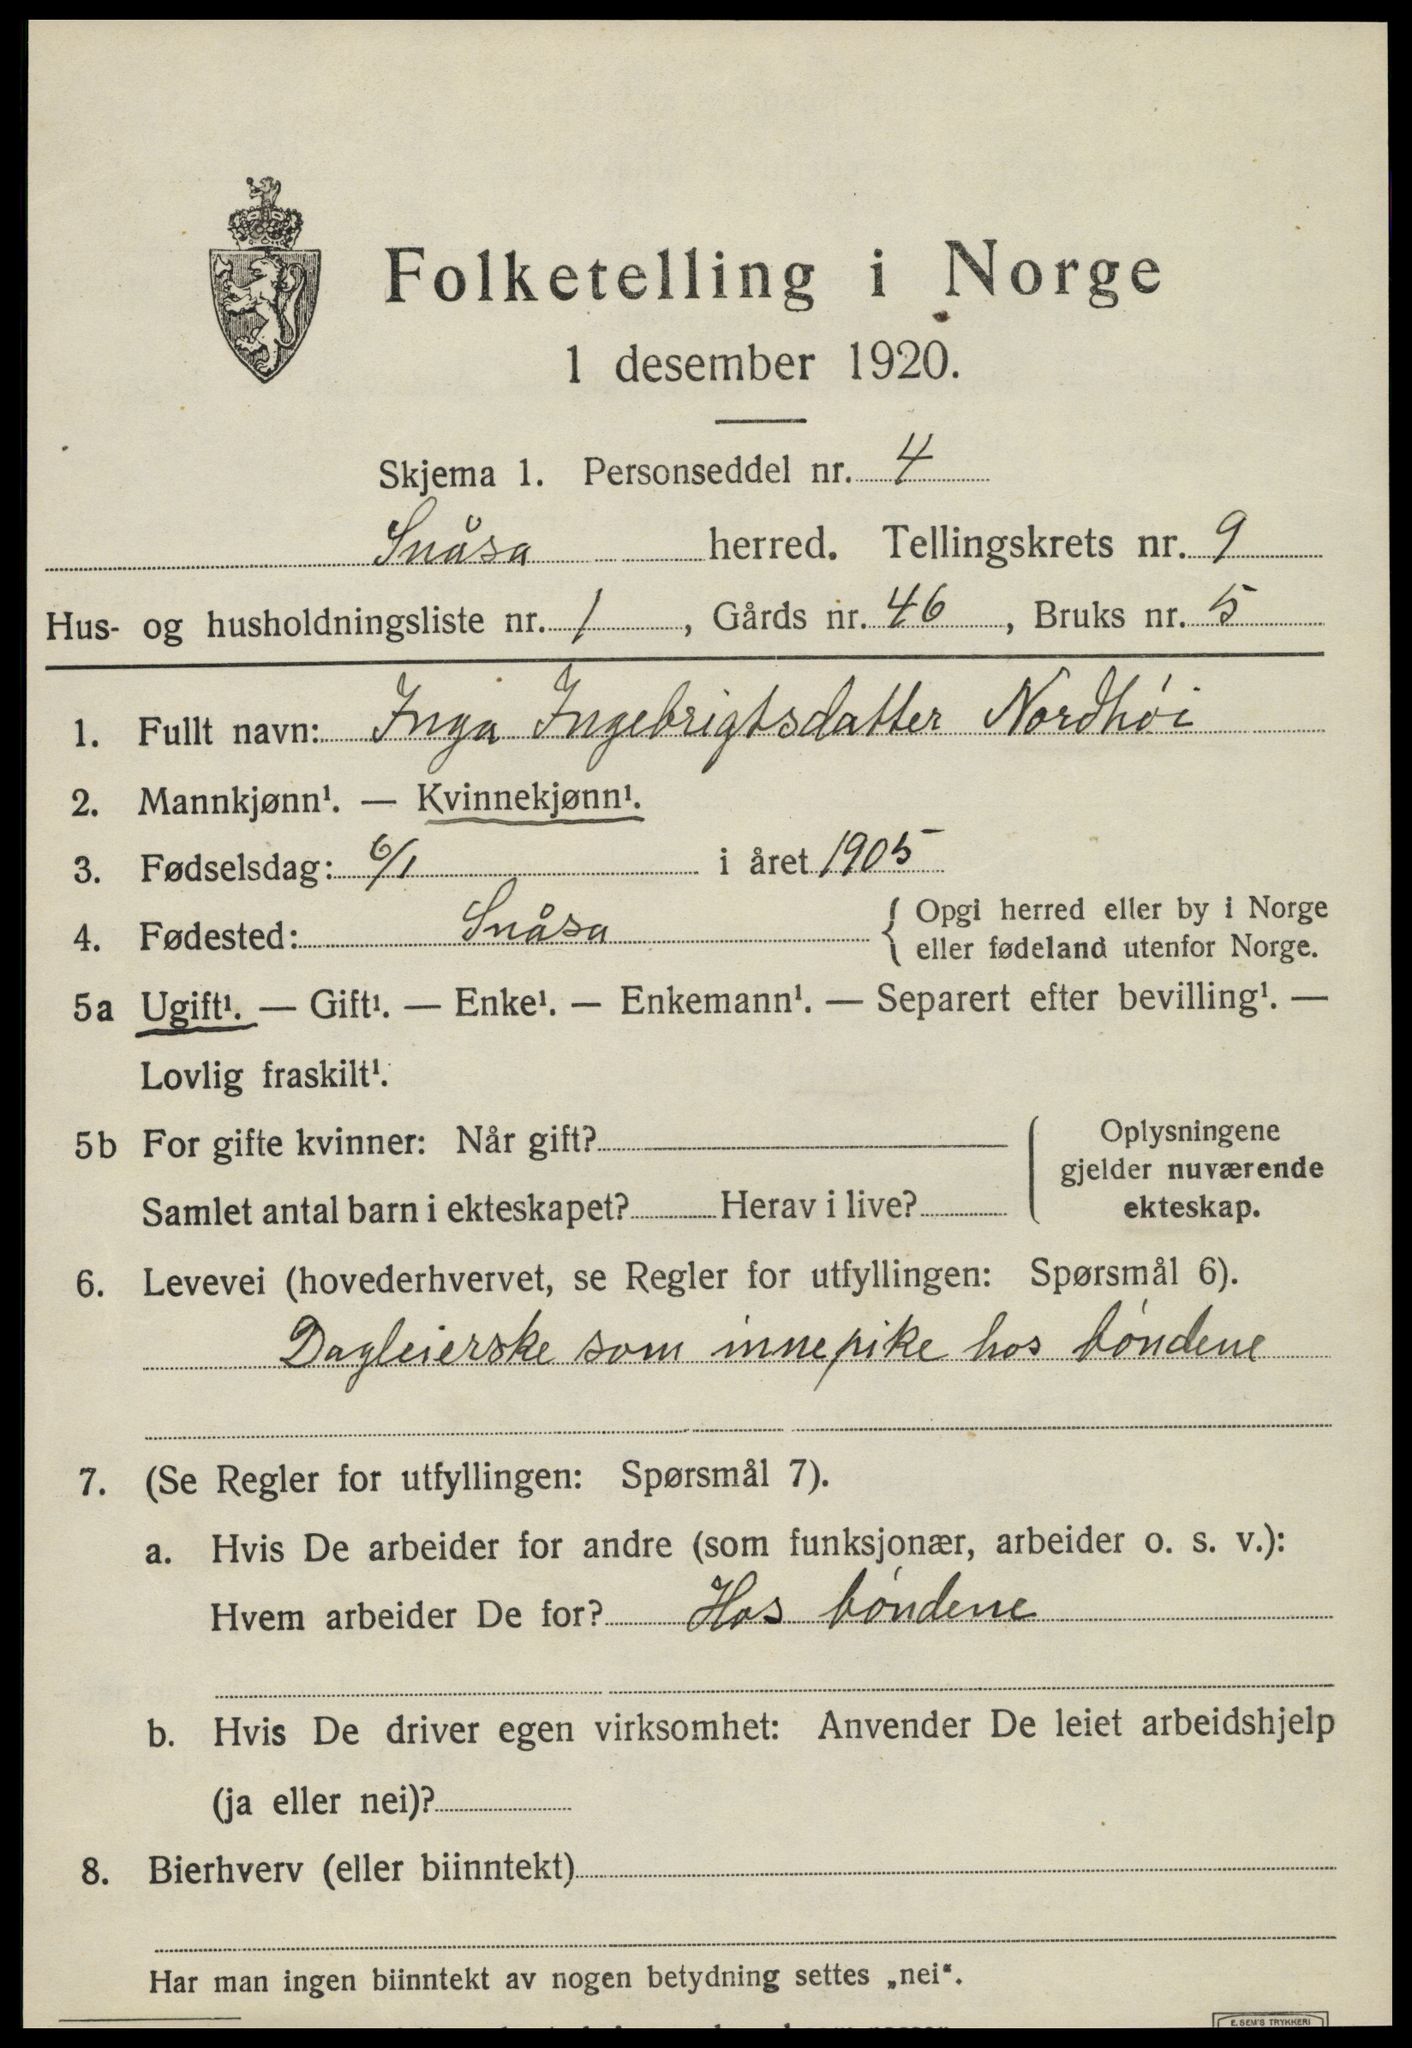 Folketelling i Norge
1 desember 1920.
Skjema 1. Personseddel nr. 4
Snåsa herred. Tellingskrets nr. 9
Hus- og husholdningsliste nr. 1, Gårds nr. 46, Bruks nr. 5
1. Fullt navn: Inga Ingebrigtsdatter Nordhói
2. Mannkjønn¹. — Kvinnekjønn¹.
3. Fødselsdag: 6/1 i året 1905
4. Fødested: Snåsa { Opgi herred eller by i Norge
eller fødeland utenfor Norge.
5a Ugift¹. — Gift¹. — Enke¹. — Enkemann¹. — Separert efter bevilling¹. —
Lovlig fraskilt¹.
5b For gifte kvinner: Når gift?
Samlet antal barn i ekteskapet? Herav i live?
Oplysningene
gjelder nuværende
ekteskap.
6. Levevei (hovederhvervet, se Regler for utfyllingen: Spørsmål 6).
Dagleierske som innepike hos bóndene
7. (Se Regler for utfyllingen: Spørsmål 7).
a. Hvis De arbeider for andre (som funksjonær, arbeider o. s. v.):
Hvem arbeider De for? Hos bóndene
b. Hvis De driver egen virksomhet: Anvender De leiet arbeidshjelp
(ja eller nei)?
8. Bierhverv (eller biinntekt)
Har man ingen biinntekt av nogen betydning settes „nei“.
E. SEM'S TRYKKERI